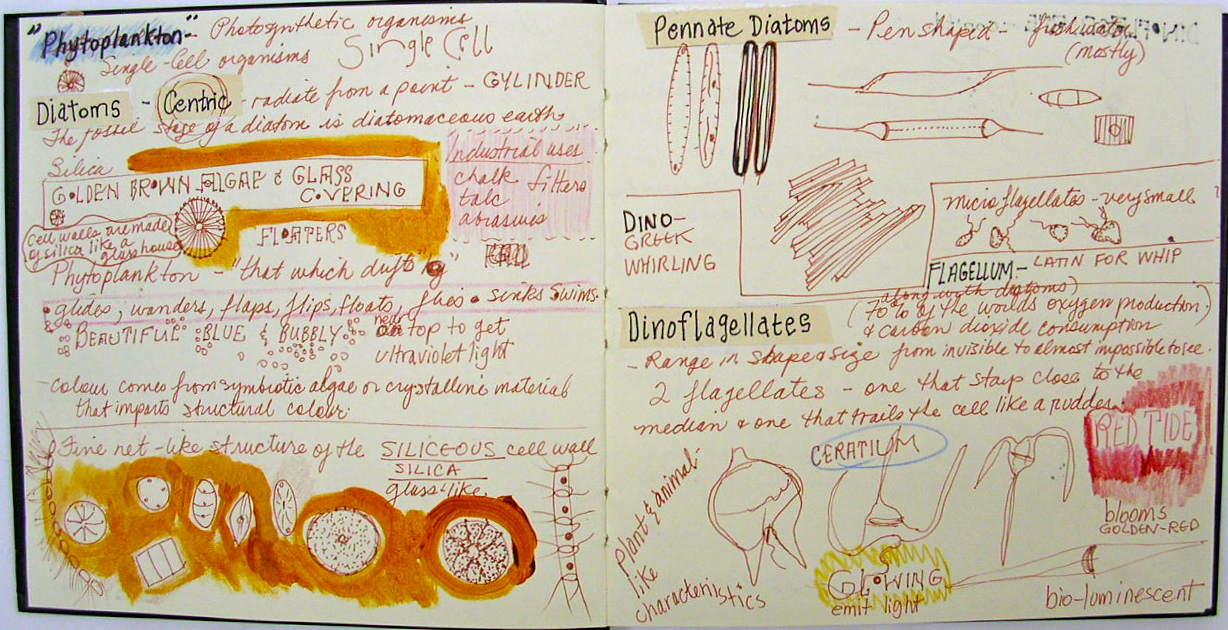 "Phytoplankton" - Photosynthetic organisms
Single Cell
Single-Cell organisms
Diatoms - Centric - radiate from a point - CYLINDER
The fossil stage of a diatom is diatomaceous earth
Silica
GOLDEN BROWN ALGAE & GLASS COVERING
Industrial uses
chalk filters
talc
abrasives
Cell walls are made
of silica like a
glass house
FLOATERS
Phytoplankton - "that which drifting"
glides, wanders, flaps, flips, floats, flies • sinks swims.
BEAUTIFUL BLUE & BUBBLY near top to get
ultraviolet light
- colour comes from symbiotic algae or crystalline material
that imparts structural colour.
Fine net-like structure of the SILICEOUS cell wall
SILICA
glass-like
Pennate Diatoms - Pen shaped - freshwater
(mostly)
DINO-
GREEK
WHIRLING
micro flagellates - very small
FLAGELLUM - LATIN FOR WHIP
along with diatoms)
(70% of the worlds oxygen production)
& carbon dioxide consumption
Dinoflagellates
- Range in shape & size from invisible to almost impossible to see.
2 flagellates - one that stays close to the
median & one that trails the cell like a rudder.
RED TIDE
CERATIUM
plant & animal-
like
characteristics
blooms
GOLDEN-RED
GLOWING
emit light
bio-luminescent